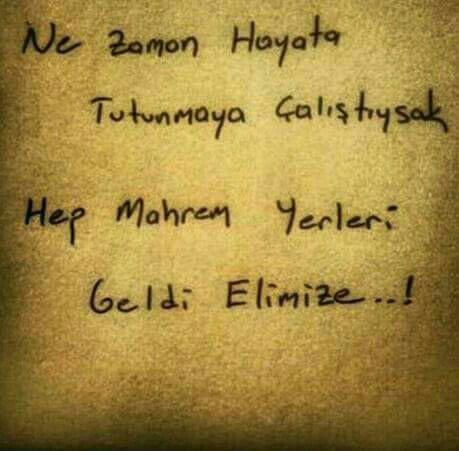 Ne Zaman Hayata
Tutunmaya Çalıştıysak
Hep Mahrem Yerleri
Geldi Elimize...!